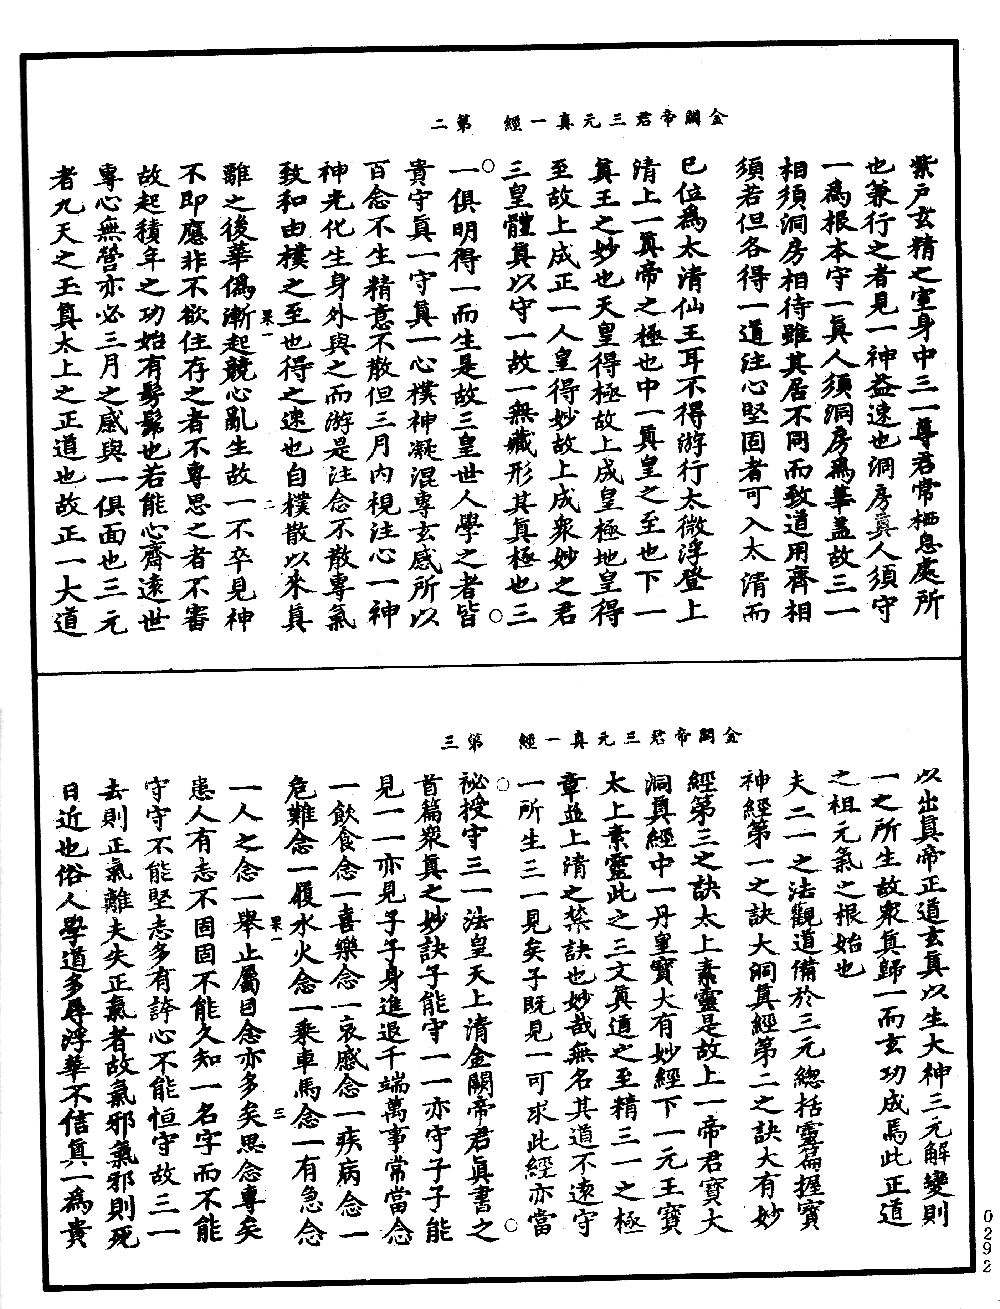 金闕帝君三元真一經　第二
紫戶玄精之室身中三一尊君常栖息處所
也兼行之者見一神益速也洞房真人須守
一為根本守一真人須洞房為華蓋故三一
相須洞房相待雖其居不同而致道用齊相
須若但各得一道注心堅固者可入太清而
已位為太清仙王耳不得游行太微浮登上
清上一真帝之極也中一真皇之至也下一
真王之妙也天皇得極故上成皇極地皇得
至故上成正一人皇得妙故上成衆妙之君
三皇體真以守一故一無藏形其真極也三
一俱明得一而生是故三皇世人學之者皆
貴守真一守真一心樸神凝混專玄感所以
百念不生精意不散但三月內視注心一神
神光化生身外與之而游是注念不散專氣
致和由樸之至也得之速也自樸散以來真
果一　二
離之後華偽漸起競心亂生故一不卒見神
不即應非不欲住存之者不專思之者不審
故起積年之功始有髣髴也若能心齋遠世
專心無營亦必三月之感與一俱面也三元
者九天之玉真太上之正道也故正一大道
金闕帝君三元真一經　第三
以出真帝正道玄真以生大神三元解變則
一之所生故衆真歸一而玄功成焉此正道
之祖元氣之根始也
夫三一之法觀道備於三元總括靈篇握寶
神經第一之訣大洞真經第二之訣大有妙
經第三之訣太上素靈是故上一帝君寶大
洞真經中一丹皇寶大有妙經下一元王寶
太上素靈此之三文真道之至精三一之極
章並上清之禁訣也妙哉無名其道不遠守
一所生三一見矣子既見一可求此經亦當
祕授守三一法皇天上清金闕帝君真書之
首篇衆真之妙訣子能守一一亦守子子能
見一一亦見子子身進退千端萬事常當念
一飲食念一喜樂念一哀慼念一疾病念一
危難念一履水火念一乘車馬念一有急念
果一　三
一人之念一舉止屬目念亦多矣思念專矣
患人有志不固固不能久知一名字而不能
守守不能堅志多有誇心不能恒守故三一
去則正氣離夫失正氣者故氣邪氣邪則死
日近也俗人學道多尋浮華不信真一為貴
0292